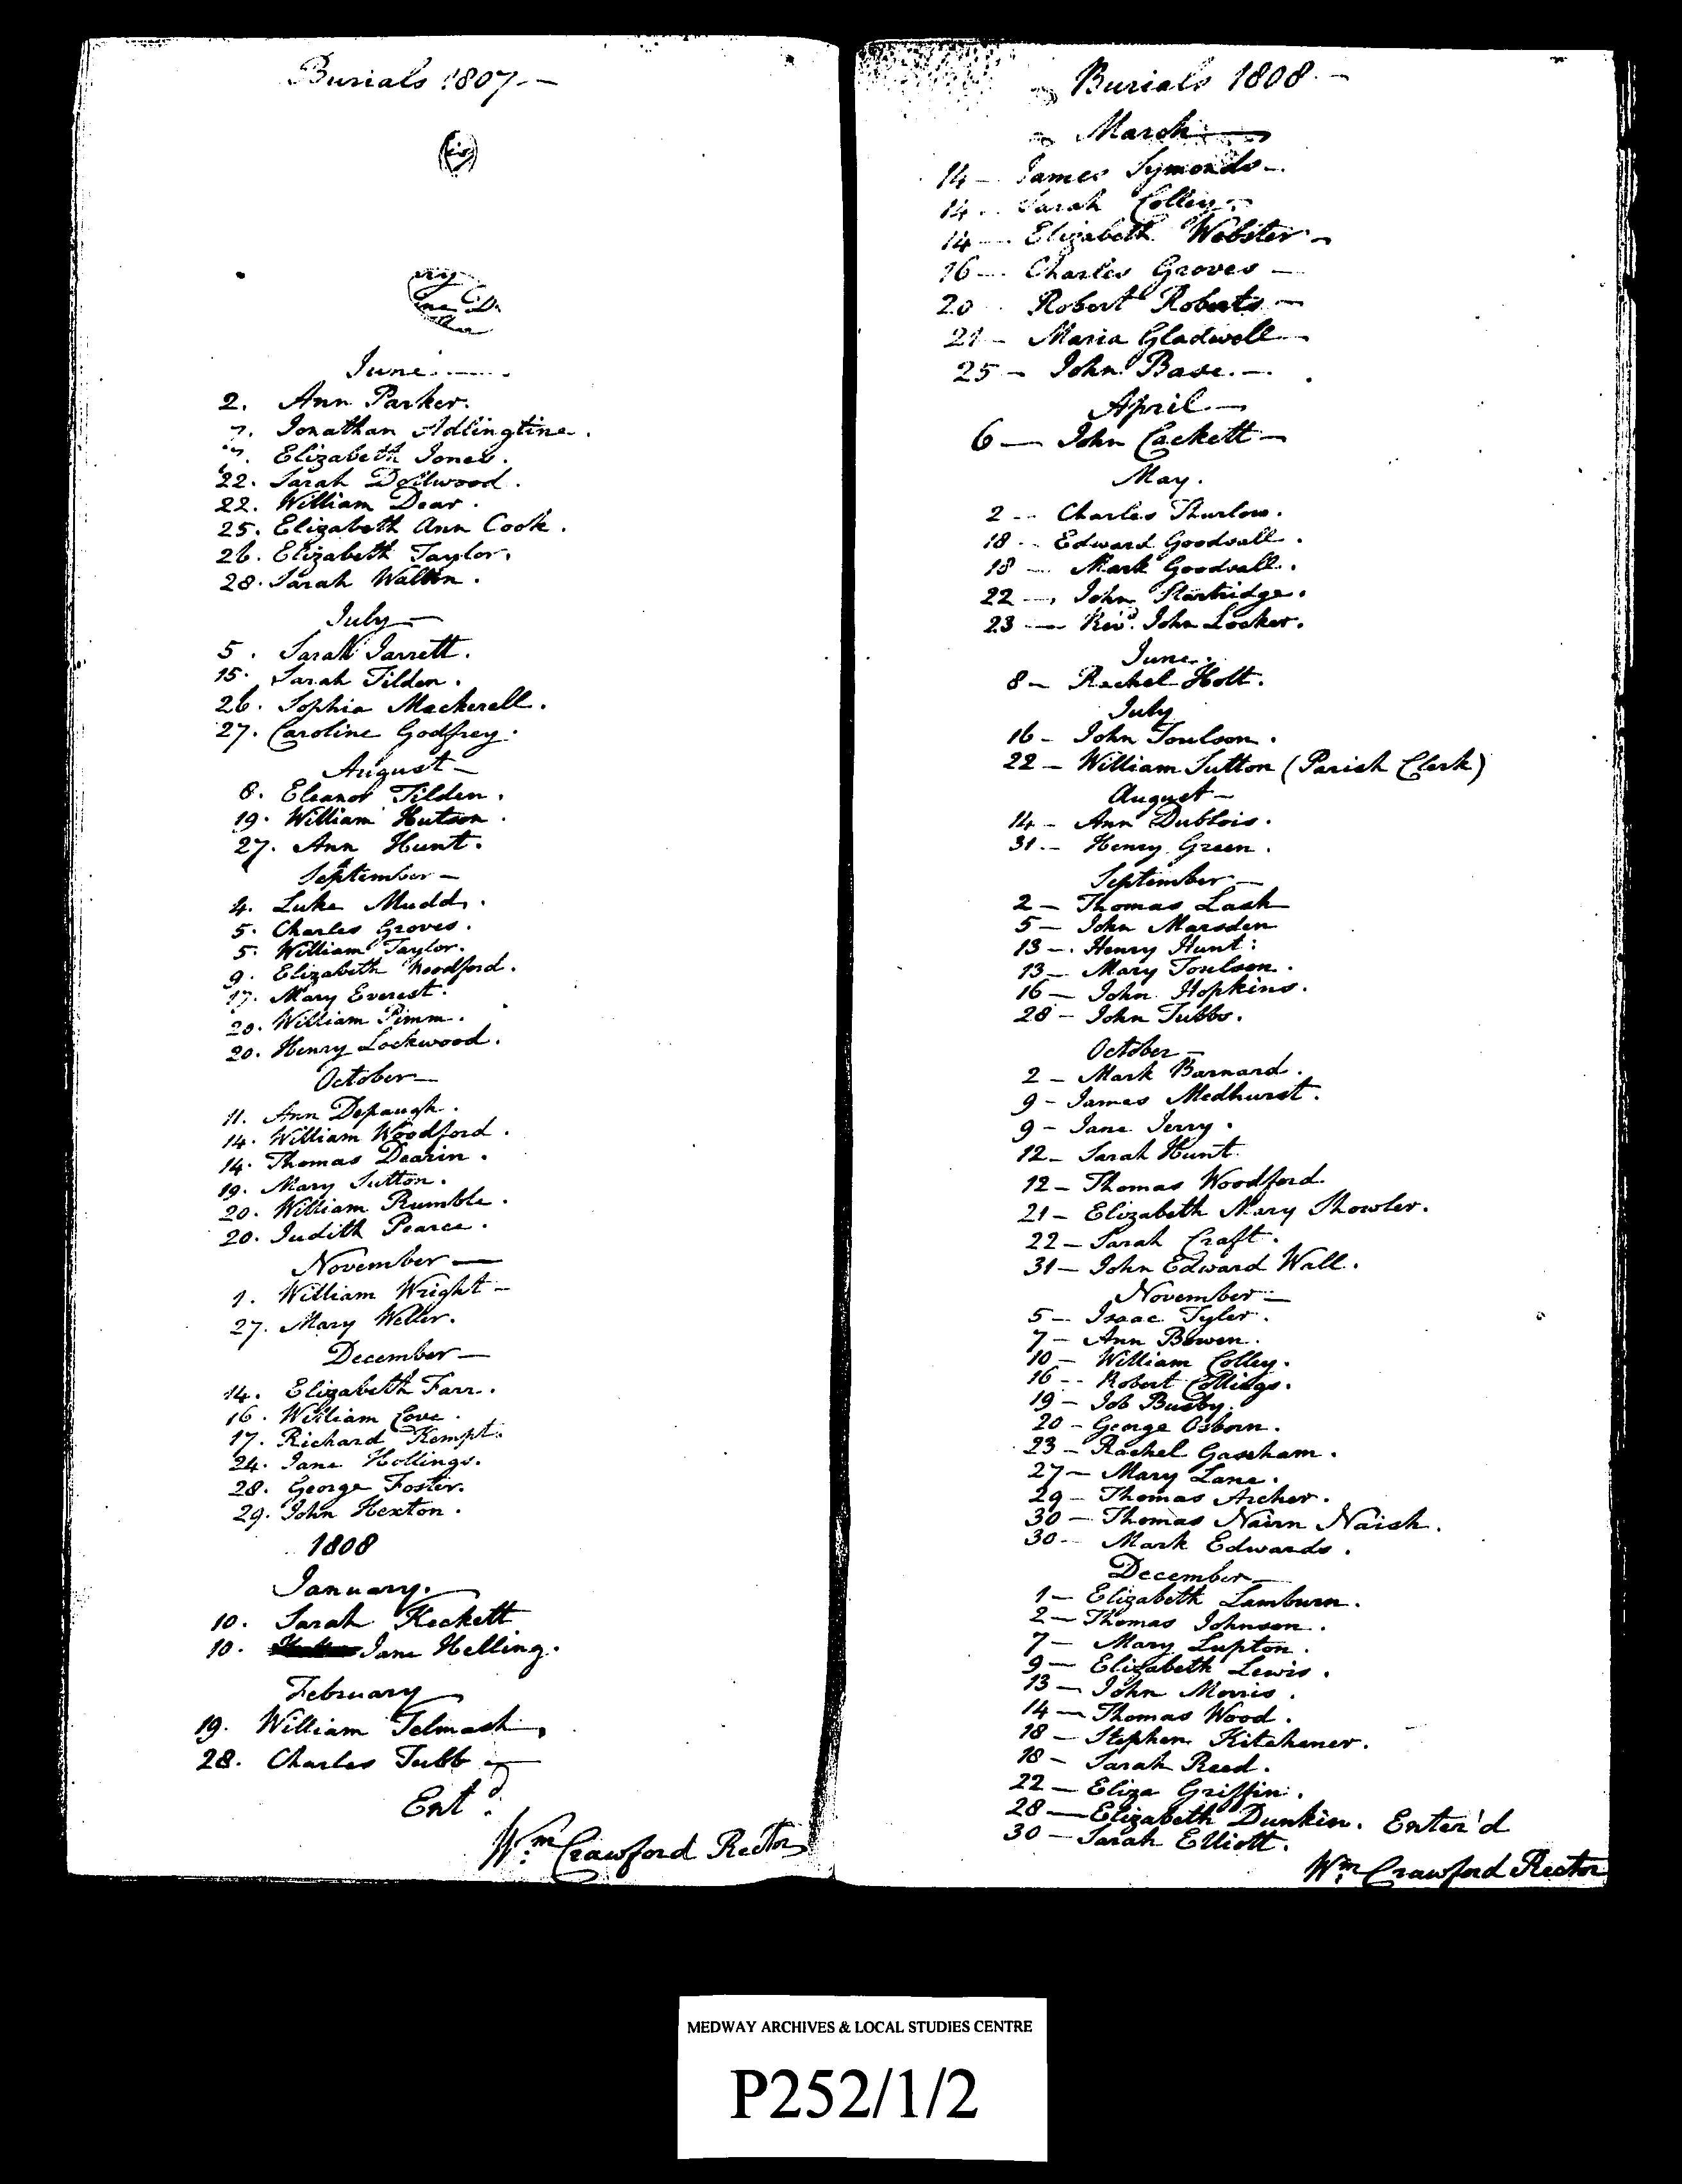 Burials 1807.—
June
2. Ann Parker.
7. Jonathan Adlingtine.
7. Elizabeth Jones.
22. Sarah Dollwood.
22. William Dear.
25. Elizabeth Ann Cook.
26. Elizabeth Taylor.
28. Sarah Walton.
July—
5. Sarah Jarrett.
15. Sarah Tilden.
26. Sophia Mackerell.
27. Caroline Godfrey.
August—
8. Eleanor Tilden.
19. William Hutson.
27. Ann Hunt.
September—
4. Luke Mudd.
5. Charles Groves.
5. William Taylor.
9. Elizabeth Woodford.
17. Mary Everest.
20. William Pimm.
20. Henry Lockwood.
October—
11. Ann Depaugh.
14. William Woodford.
14. Thomas Dearin.
19. Mary Sutton.
20. William Rumble.
20. Judith Pearce.
November—
1. William Wright—
27. Mary Weller.
December—
14. Elizabeth Farr.
16. William Love.
17. Richard Kempt.
24. Jane Hollings.
28. George Foster.
29. John Hexton.
1808
January.
10. Sarah Keckett
10. Jane Helling.
February
19. William Telmash
28. Charles Tubb
Ent.d
Wm. Crawford Rector
Burials 1808—
March
14— James Symonds—
14— Sarah Colley—
14— Elizabeth Webster—
16— Charles Groves—
20 Robert Roberts—
21— Maria Gladwell—
25— John Base.—
April—
6— John Cackett—
May.
2— Charles Thurlow.
18— Edward Goodsall.
18— Mark Goodsall.
22— John Startridge.
23— Revd. John Locker.
June.
8— Rachel Holt.
July
16— John Toulson.
22— William Sutton (Parish Clerk)
August—
14— Ann Dublois.
31.— Henry Green.
September—
2— Thomas Lash
5— John Marsden
13—. Henry Hunt.
13— Mary Toulson.
16— John Hopkins.
28— John Tubbs.
October—
2— Mark Barnard.
9— James Medhurst.
9— Jane Jerry.
12— Sarah Hunt.
12— Thomas Woodford.
21— Elizabeth Mary Showler.
22— Sarah Craft.
31— John Edward Wall.
November—
5— Isaac Tyler.
7— Ann Bowen.
10— William Colley.
16— Robert Collings.
19— Job Busby.
20— George Osborn.
23— Rachel Gascham.
27— Mary Lane.
29— Thomas Archer.
30— Thomas Nairn Naish.
30— Mark Edwards.
December—
1— Elizabeth Lamburn.
2— Thomas Johnson.
7— Mary Lupton.
9— Elizabeth Lewis.
13— John Morris.
14— Thomas Wood.
18— Stephen Kitchener.
18— Sarah Reed.
22— Eliza Griffin.
28— Elizabeth Dunkin. Enter'd
30— Sarah Elliott.
Wm. Crawford Rector
MEDWAY ARCHIVES & LOCAL STUDIES CENTRE
P252/1/2